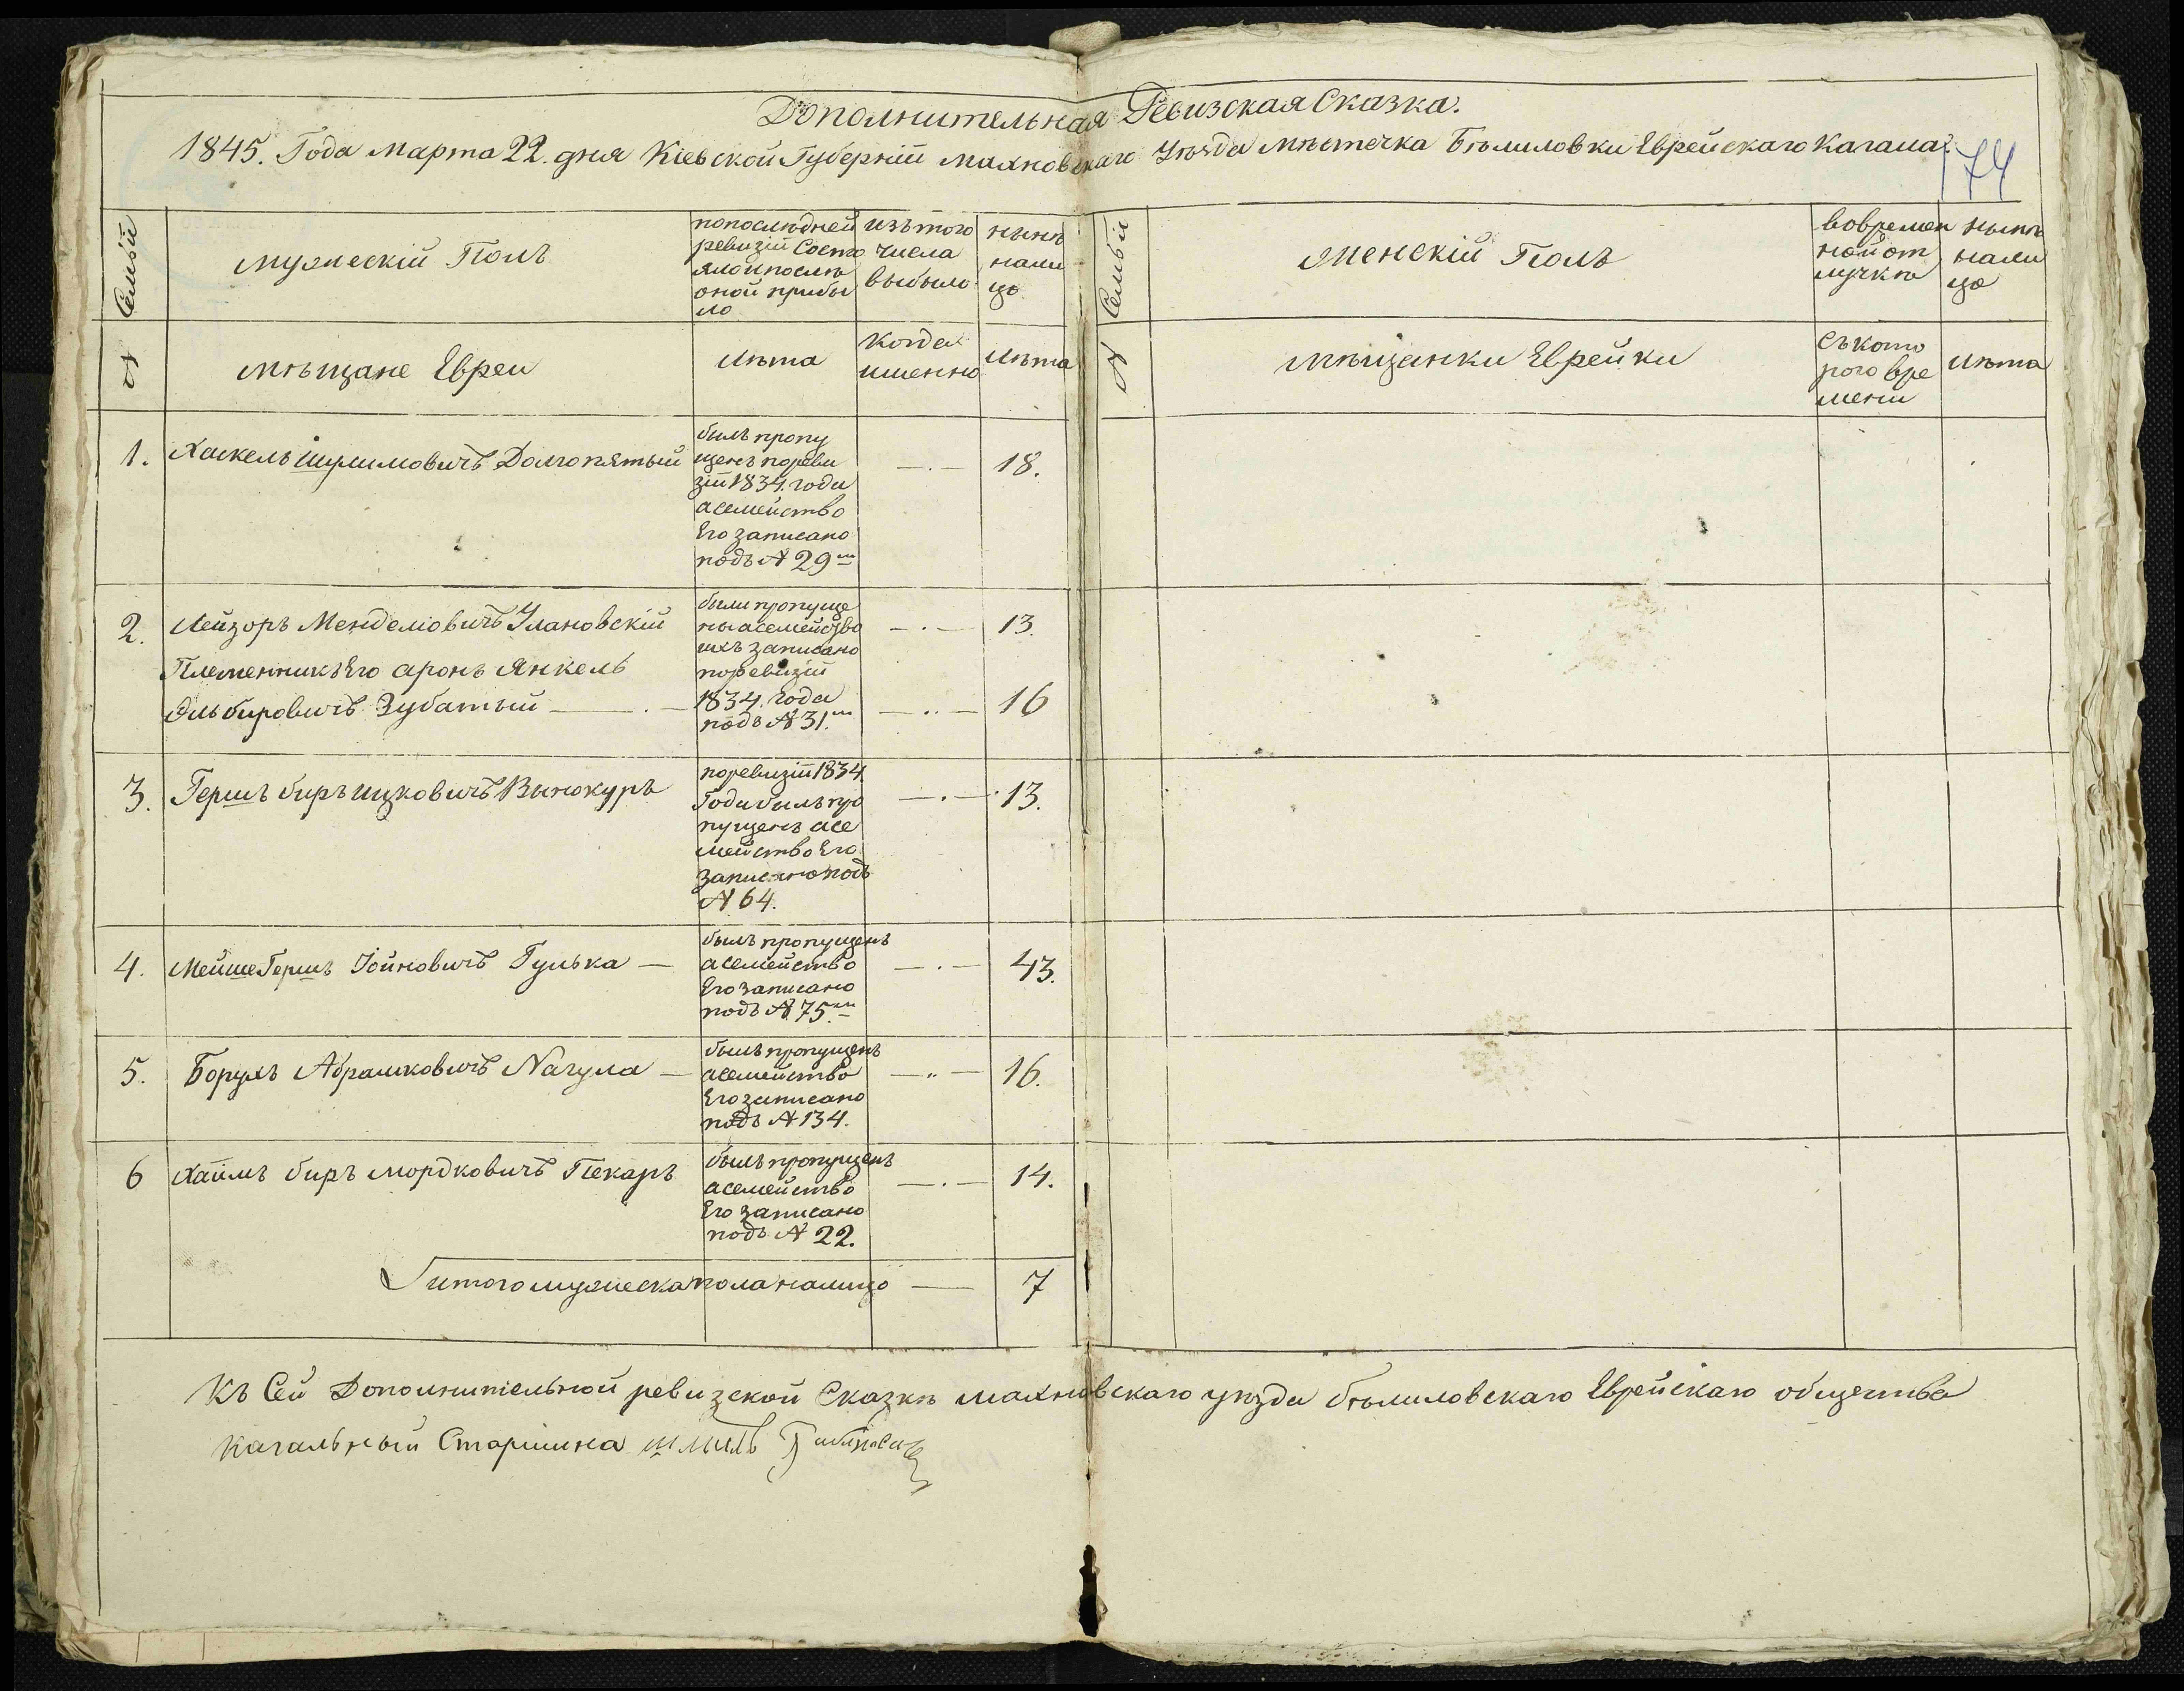 Дополнительная Ревизская Сказка.
1845. Года марта 22. дня Кіевской Губерніи махновскаго Уѣзда мѣстечка Бѣлиловки Еврейскаго Кагала.
174
Семьи
мужескій Полъ
попослѣдней
ревизіи Состо
ялоипослѣ
оной прибы
ло
изътого
числа
выбыло
нынѣ
нали
цо
Семьи
женскій Полъ
вовремен
ной от
лучкѣ
нынѣ
нали
цо
№
мѣщане Евреи
лѣта
когда
именно
лѣта
№
мѣщанки Еврейки
съкото
рого вре
мени
лѣта
1. Хаскель Шулимовичъ Долгопятый
былъ пропу
щенъ пореви
зіи 1834. года
асемейство
Его записано
подъ № 29ᵐ
—.— 18.
2. Лейзоръ Менделіовичъ Улановскій
Племенникъ Его аронъ Янкель
Эльбировичъ Зубатый —.—
были пропуще
ны асемейство
ихъ записано
поревизіи
1834. года
подъ № 31.ᵐ
—.— 13.
—..— 16
3. Гершъ биръ ицковичъ Винокуръ
поревизіи 1834
Года былъ про
пущенъ асе
мейство Его
записано подъ
№ 64.
—.— 13.
4. Мейше Гершъ Іойновичъ Гулька —
былъ пропущенъ
асемейство
Его записано
подъ № 75.ᵐ
—.— 43.
5. Борухъ Абрамковичъ Nагула —
былъ пропущенъ
асемейство
Его записано
подъ № 134.
—..— 16.
6 Хаимъ биръ мордковичъ Пекаръ
былъ пропущенъ
асемейство
Его записано
подъ № 22.
—.— 14.
итого мужеска пола налицо — 7
Къ Сей Дополнительной ревизской Сказкѣ махновскаго уѣзда бѣлиловскаго Еврейскаго общества
кагальный Старшина шмиль